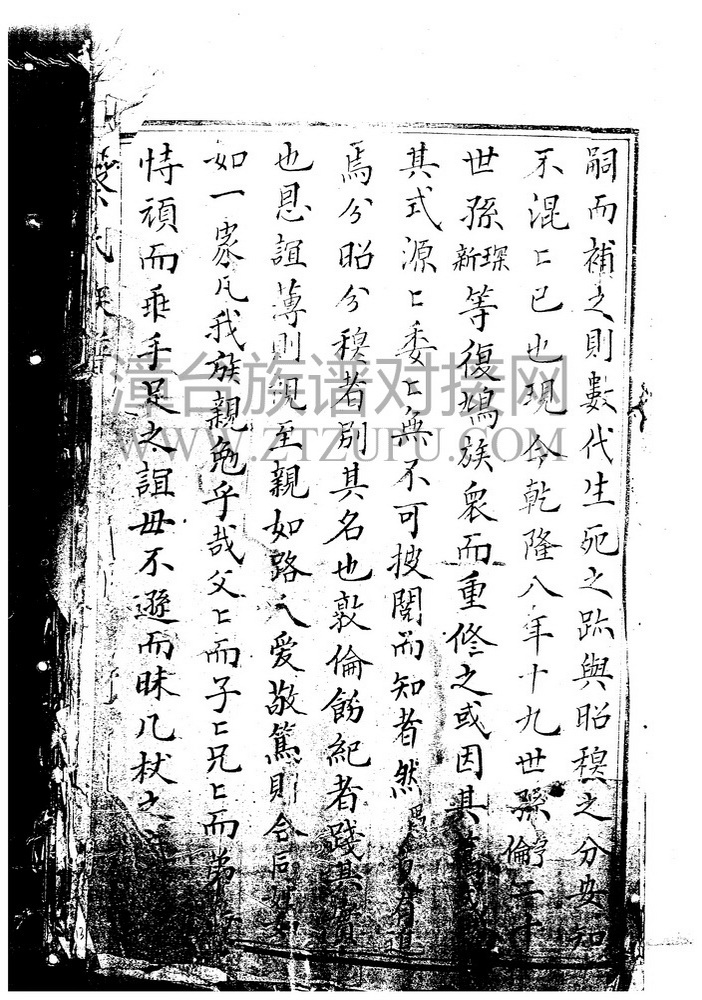 嗣而補之則數代生死之跡與昭穆之分安知
不混匕已也現今乾隆八年十九世孫倫
世孫琛新等復鳩族衆而重修之或因其
其式源匕委匕無不可披閱而知者然
焉分昭分穆者別其名也敦倫飭紀者踐其實
也恩誼薄則視至親如路人愛敬篤則合同姓如
如一家凡我族親勉乎哉父匕而子匕兄匕而弟
恃頑而乖手足之誼毋不遜而昧几杖之
氏族譜
漳台族谱对接网
WWW.ZTZUPU.COM